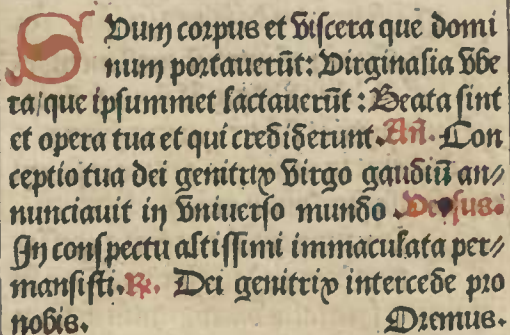 SDum corpus et viscera que domi
num portauerūt: Virginalia vbe
ra/que ipsummet lactauerūt: Beata sint
et opera tua et qui crediderunt. Añ. Con
ceptio tua dei genitrix virgo gaudiū an//
nunciauit in vniuerso mundo Versus.
In conspectu altissimi immaculata per//
mansisti. R̃. Dei genitrix intercede pro
nobis. Oremus.